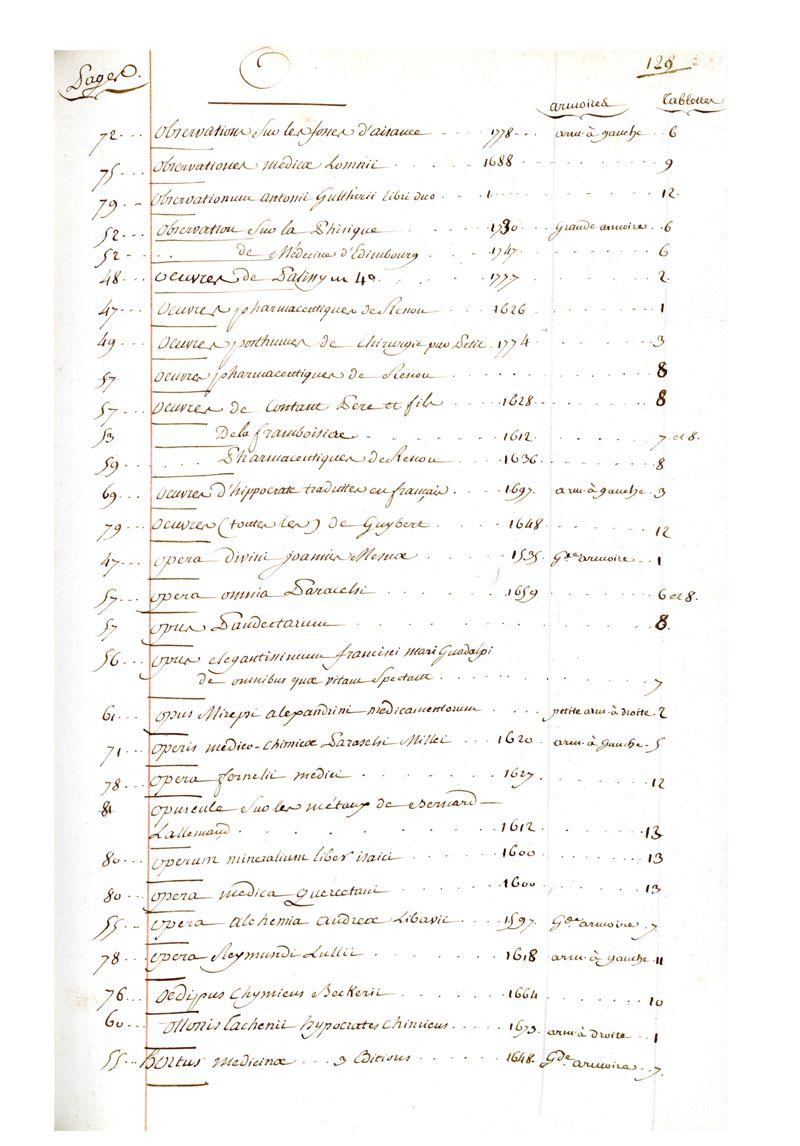 Pages.
O
128
armoires
Tablettes
72... Observations Sur les fosses d'aisance .... 1778... arm. à gauche 6
75... Observationes medicæ Lomnii ..... 1688 ....... 9
79.. Observationum antonii Gultherii libri duo . 1 ....... 12
52... Observation Sur la Phisique .... 1730 Grande armoire . 6
52... ... de Médecine d'Edimbourg ... 1747 ....... 6
48... Oeuvres de Palissy in 4º .... 1777 ....... 2
47... Oeuvres pharmaceutiques de Renou ... 1626 ....... 1
49... Oeuvres posthumes de Chirurgie par Petit. 1774 ....... 3
57 Oeuvres pharmaceutiques de Renou ....... 8
57... Oeuvres de Contant Pere et fils .... 1628 ....... 8
53 De la framboisiere ..... 1612 ....... 7 et 8.
59... .... Pharmaceutiques de Renou .... 1636 ....... 8
69... Oeuvres d'hippocrate traduittes en français . 1697. arm. à gauche . 3
79... Oeuvres (toutes les) de Guybert .... 1648 ....... 12
47... opera divini joannis Mesuæ .... 1535. Gde armoire .. 1
57... opera omnia Paracelsi ..... 1659 ....... 6 et 8.
57 opus Pandectarum ....... 8.
56... opus elegantissimum francisci mari Guadalpi
de omnibus quæ vitam Spectant ....... 7
61. opus Mirepsi alexandrini medicamentorum petite arm. à droite. 2
71... operis medico-chimicæ Paraselsi Millei .. 1620 arm. à gauche . 5
78... opera fernelii medici ...... 1627 ....... 12
81 opuscule Sur les métaux de Bernard-
Lallemand ....... 1612 ....... 13
80... operum mineralium liber isaici .... 1600 ....... 13
80... opera medica Quercetani .... 1600 ....... 13
55... opera alchemia andreæ Libavii ... 1597. Gde armoire . 7
78... opera Reymundi Lullii ..... 1618 arm. à gauche . 11
76... Oedippus Chymicus Beckerii ..... 1664 ....... 10
60... Ottonis tachenii hypocrates Chimicus .... 1673 arm. à droite . 1
55... hortus medicinæ ... 3 Editions .... 1648. Gde armoire . 7.